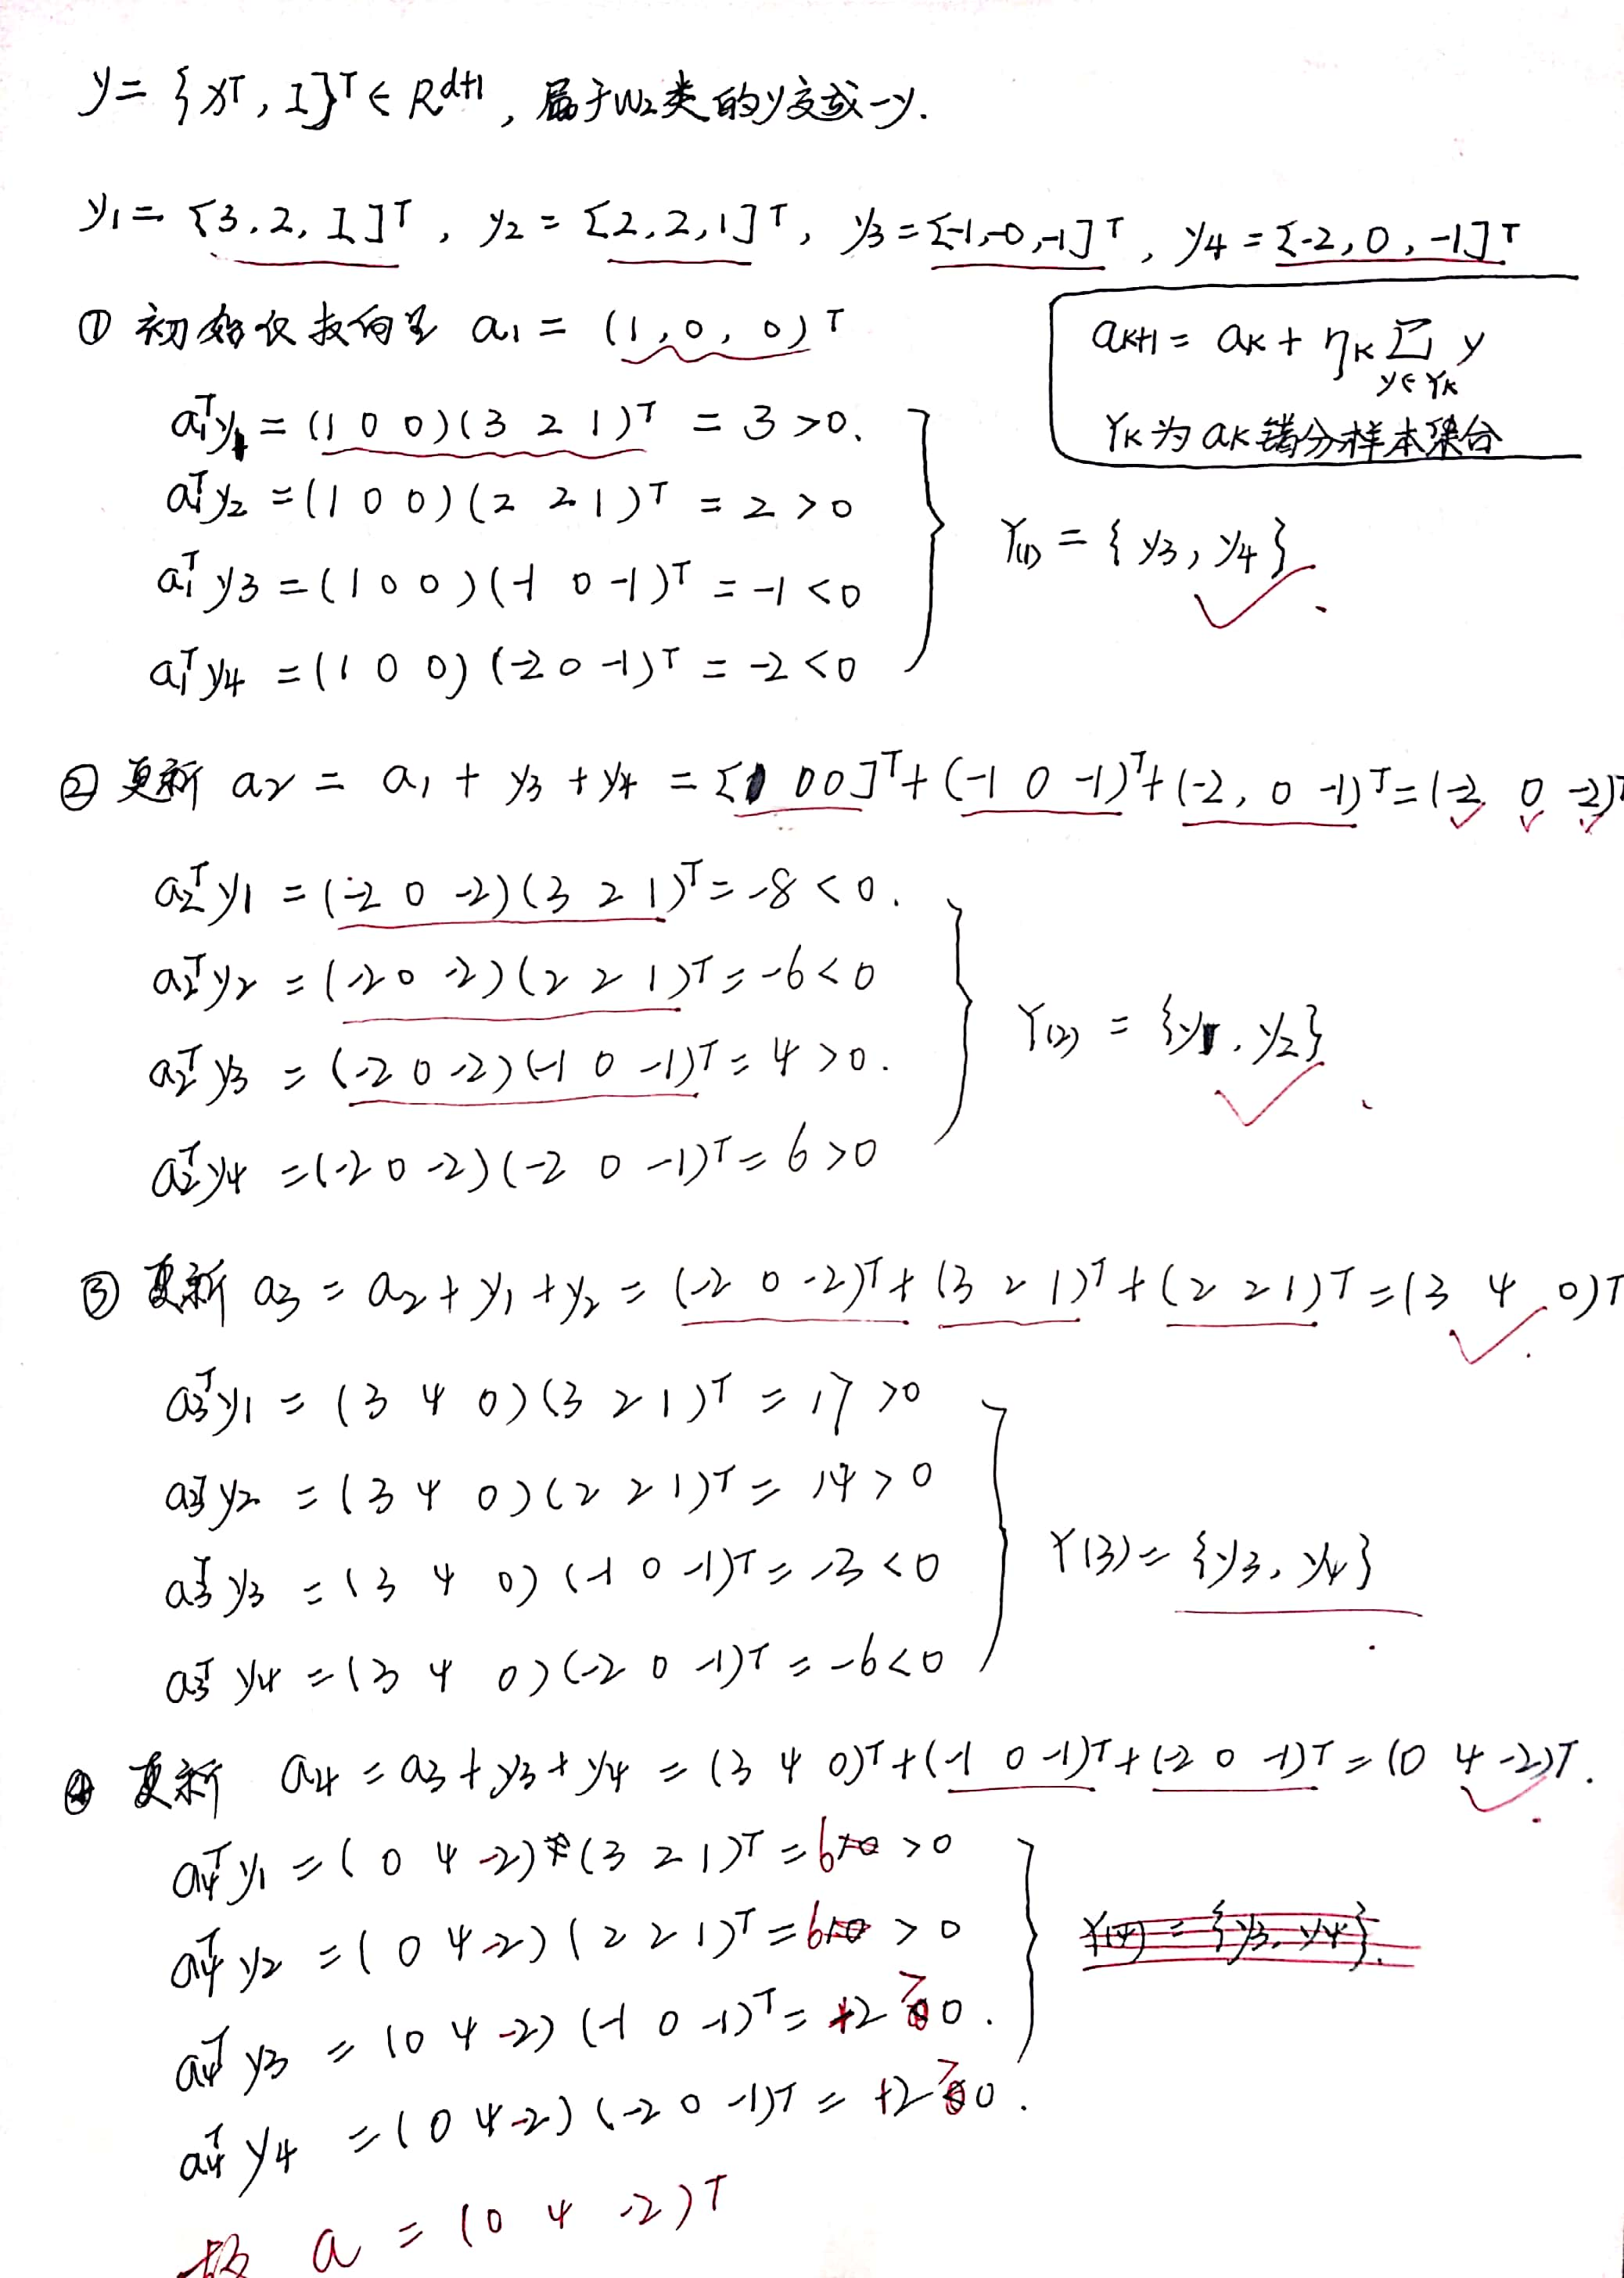 y = {xᵀ, 1}ᵀ ∈ R^{d+1}, 属于w₂类的y变成-y.
y₁ = [3, 2, 1]ᵀ, y₂ = [2, 2, 1]ᵀ, y₃ = [-1, -0, -1]ᵀ, y₄ = [-2, 0, -1]ᵀ
① 初始权抜向量 a₁ = (1, 0, 0)ᵀ
a_{K+1} = a_K + η_K Σ_{y∈Y_K} y
Y_K为a_K错分样本集合
a₁ᵀy₁ = (1 0 0)(3 2 1)ᵀ = 3 > 0.
a₁ᵀy₂ = (1 0 0)(2 2 1)ᵀ = 2 > 0
a₁ᵀy₃ = (1 0 0)(-1 0 -1)ᵀ = -1 < 0
a₁ᵀy₄ = (1 0 0)(-2 0 -1)ᵀ = -2 < 0
Y₍₁₎ = {y₃, y₄}
② 更新 a₂ = a₁ + y₃ + y₄ = [1 0 0]ᵀ + (-1 0 -1)ᵀ + (-2, 0 -1)ᵀ = (-2 0 -2)ᵀ
a₂ᵀy₁ = (-2 0 -2)(3 2 1)ᵀ = -8 < 0.
a₂ᵀy₂ = (-2 0 -2)(2 2 1)ᵀ = -6 < 0
a₂ᵀy₃ = (-2 0 -2)(-1 0 -1)ᵀ = 4 > 0.
a₂ᵀy₄ = (-2 0 -2)(-2 0 -1)ᵀ = 6 > 0
Y₍₂₎ = {y₁, y₂}
③ 更新 a₃ = a₂ + y₁ + y₂ = (-2 0 -2)ᵀ + (3 2 1)ᵀ + (2 2 1)ᵀ = (3 4 0)ᵀ
a₃ᵀy₁ = (3 4 0)(3 2 1)ᵀ = 17 > 0
a₃ᵀy₂ = (3 4 0)(2 2 1)ᵀ = 14 > 0
a₃ᵀy₃ = (3 4 0)(-1 0 -1)ᵀ = -3 < 0
a₃ᵀy₄ = (3 4 0)(-2 0 -1)ᵀ = -6 < 0
Y(3) = {y₃, y₄}
④ 更新 a₄ = a₃ + y₃ + y₄ = (3 4 0)ᵀ + (-1 0 -1)ᵀ + (-2 0 -1)ᵀ = (0 4 -2)ᵀ.
a₄ᵀy₁ = (0 4 -2)(3 2 1)ᵀ = 6 > 0
a₄ᵀy₂ = (0 4 -2)(2 2 1)ᵀ = 6 > 0
a₄ᵀy₃ = (0 4 -2)(-1 0 -1)ᵀ = +2 > 0.
a₄ᵀy₄ = (0 4 -2)(-2 0 -1)ᵀ = +2 > 0.
Y(4) = {y₃, y₄}.
故 a = (0 4 -2)ᵀ